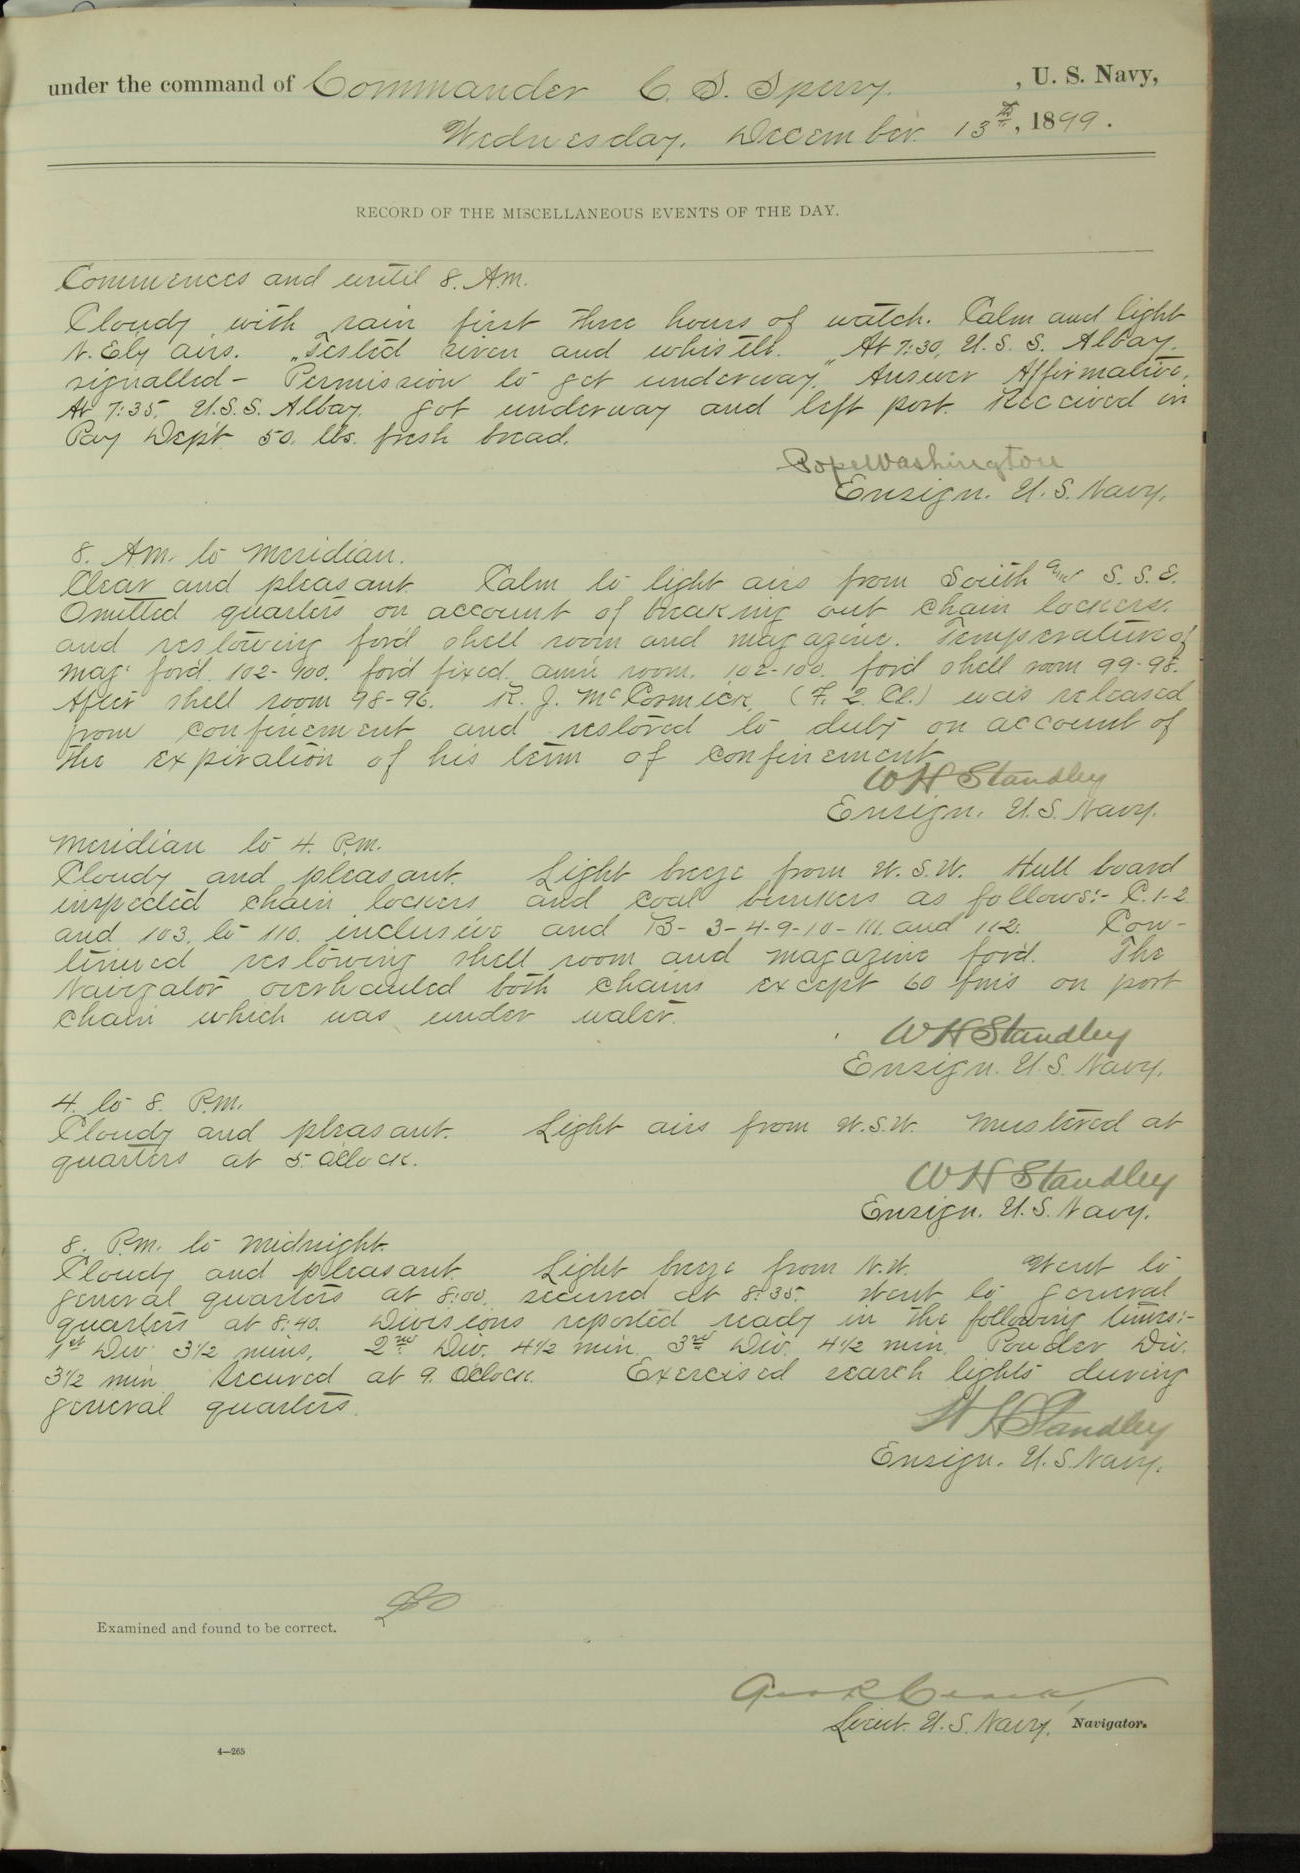 under the command of Commander C. S. Sperry. , U. S. Navy,
Wednesday, December 13th, 1899.
RECORD OF THE MISCELLANEOUS EVENTS OF THE DAY.
Commences and until 8. A.m.
Cloudy with rain first three hours of watch. Calm and light
N. Ely airs. Tested siren and whistle. At 7:30, U. S. S. Albay.
signalled- "Permission to get underway." Answer Affirmative.
At 7:35. U.S.S. Albay. got underway and left port. Received in
Pay Dept. 50. lbs. fresh bread.
Pope Washington
Ensign. U. S. Navy.
8. A.m. to meridian.
Clear and pleasant. Calm to light airs from South and S. S. E.
Omitted quarters on account of breaking out chain lockers.
and restowing for'd shell room and magazine. Temperature of
mag: for'd. 102-900. for'd fixed. am'n room. 102-100. for'd shell room 99-98.
After shell room 98-96. R. J. McCormick, (F. 2. Cl.) was released
from confinement and restored to duty on account of
the expiration of his term of confinement
W H Standley
Ensign. U.S. Navy.
Meridian to 4. P.m.
Cloudy and pleasant. Light breeze from W. S. W. Hull board
inspected chain lockers and coal bunkers as follows:- C. 1-2
and 103. to 110. inclusive and B- 3-4-9-10-111. and 112. Con-
tinued restowing shell room and magazine for'd. The
Navigator overhauled both chains except 60 fms on port
chain which was under water.
W H Standley
Ensign. U. S. Navy.
4. to 8. P.m.
Cloudy and pleasant. Light airs from W.S.W. Mustered at
quarters at 5. O'Clock.
W H Standley
Ensign. U. S. Navy.
8. P.m. to midnight.
Cloudy and pleasant. Light breeze from N.W. Went to
general quarters at 8:00. secured at 8:35. Went to general
quarters at 8:40. Divisions reported ready in the following times:-
1st Div. 3 1/2 mins. 2nd Div. 4 1/2 min. 3rd Div. 4 1/2 min. Powder Div.
3 1/2 min. Secured at 9. O'Clock. Exercised search lights during
general quarters.
W H Standley
Ensign. U. S. Navy.
Examined and found to be correct.
Lieut. U. S. Navy, Navigator.
4—265